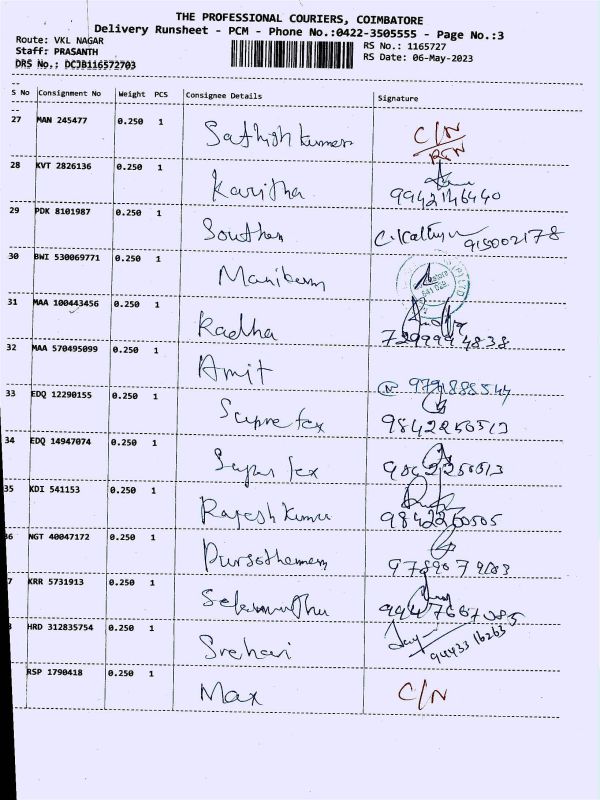 THE PROFESSIONAL COURIERS, COIMBATORE
Delivery Runsheet - PCM - Phone No.:0422-3505555 - Page No.:3
Route: VKL NAGAR
RS No.: 1165727
Staff: PRASANTH
RS Date: 06-May-2023
DRS No.: DCJB116572703
S No Consignment No Weight PCS Consignee Details Signature
27 MAN 245477 0.250 1 Sathish kumar C/N
28 KVT 2826136 0.250 1 Kavitha 9942146440
29 PDK 8101987 0.250 1 Southern 915002178
30 BWI 530069771 0.250 1
31 MAA 100443456 0.250 1 Radha 7299994838
32 MAA 570495099 0.250 1 Amit 9791888544
33 EDQ 12290155 0.250 1 Supre tex 9842250513
34 EDQ 14947074 0.250 1 tex
35 KDI 541153 0.250 1 Rajesh Kumar 9842260505
36 NGT 40047172 0.250 1
7 KRR 5731913 0.250 1 Selvamuthu
HRD 312835754 0.250 1 Srehari 9443316263
RSP 1790418 0.250 1 Max C/N